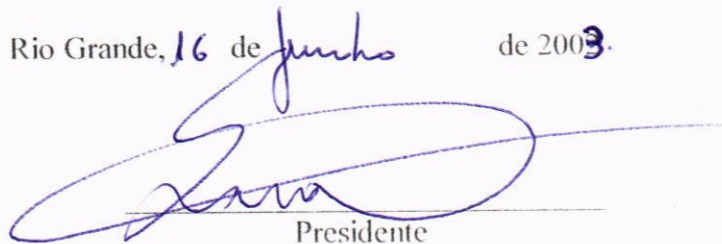 Rio Grande, 16 de Junho de 2003.
Presidente